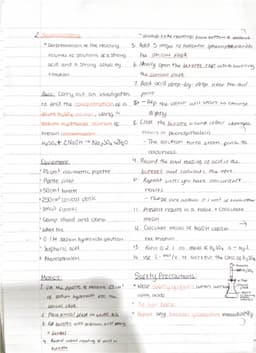 2.
* Determination of the reacting
volumes of solutions of a strong
acid and a strong alkali by
titration
Aim: Carry out an investigation
to find the concentration of a
dilute sulfuric acid, using
sodium hydroxide solution of
known concentration
H₂SO₄ + 2NaOH → Na₂SO₄ + 2H₂O
Equipment
* 25cm³ volumetric pipette
* Pipette filler
* 50cm³ burette
* 250cm³ conical flask
* Small funnel
* Clamp stand and clamp
* White tile
* 0.1M sodium hydroxide solution
* Sulphuric acid
* Phenolphthalein
Method:
1. Use the pipette to measure 25cm³
of sodium hydroxide into the
conical flask
2. Place conical flask on white tile
3. Fill burette with sulphuric acid using
a funnel
4. Record initial reading of acid in
burette
- always take readings from bottom of meniscus
5. Add 5 drops of indicator (phenolphthalein) to
the conical flask
6. Slowly open the burette tap whilst swirling
the conical flask
7. Add acid drop-by-drop after the acid
- the colour will start to change
slightly
8. Close the burette when colour changes
- The solution turns from pink to
colourless
9. Record the final reading of acid in the
burette and calculate the titre
10. Repeat until you have concordant
results
11. Present results in a table + calculate
mean
12. Calculate moles of NaOH used in
the titration
Safety Precautions:
* Wear safety goggles when working
with acids
* Tie hair back
* Report any broken glassware immediately